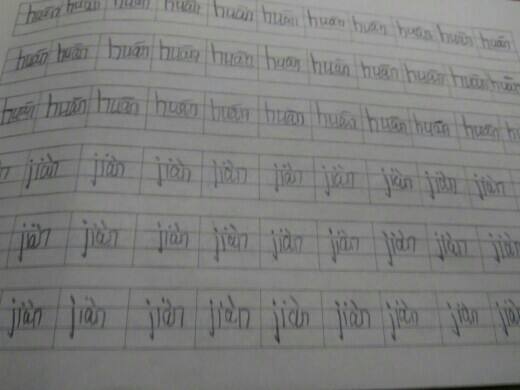 huān huān huān huān huān huān huān huān huān huān huān
huān huān huān huān huān huān huān huān huān huān huān
huān huān huān huān huān huān huān huān huān huān
jiàn jiàn jiàn jiàn jiàn jiàn jiàn jiàn jiàn
jiàn jiàn jiàn jiàn jiàn jiàn jiàn jiàn jiàn
jiàn jiàn jiàn jiàn jiàn jiàn jiàn jiàn